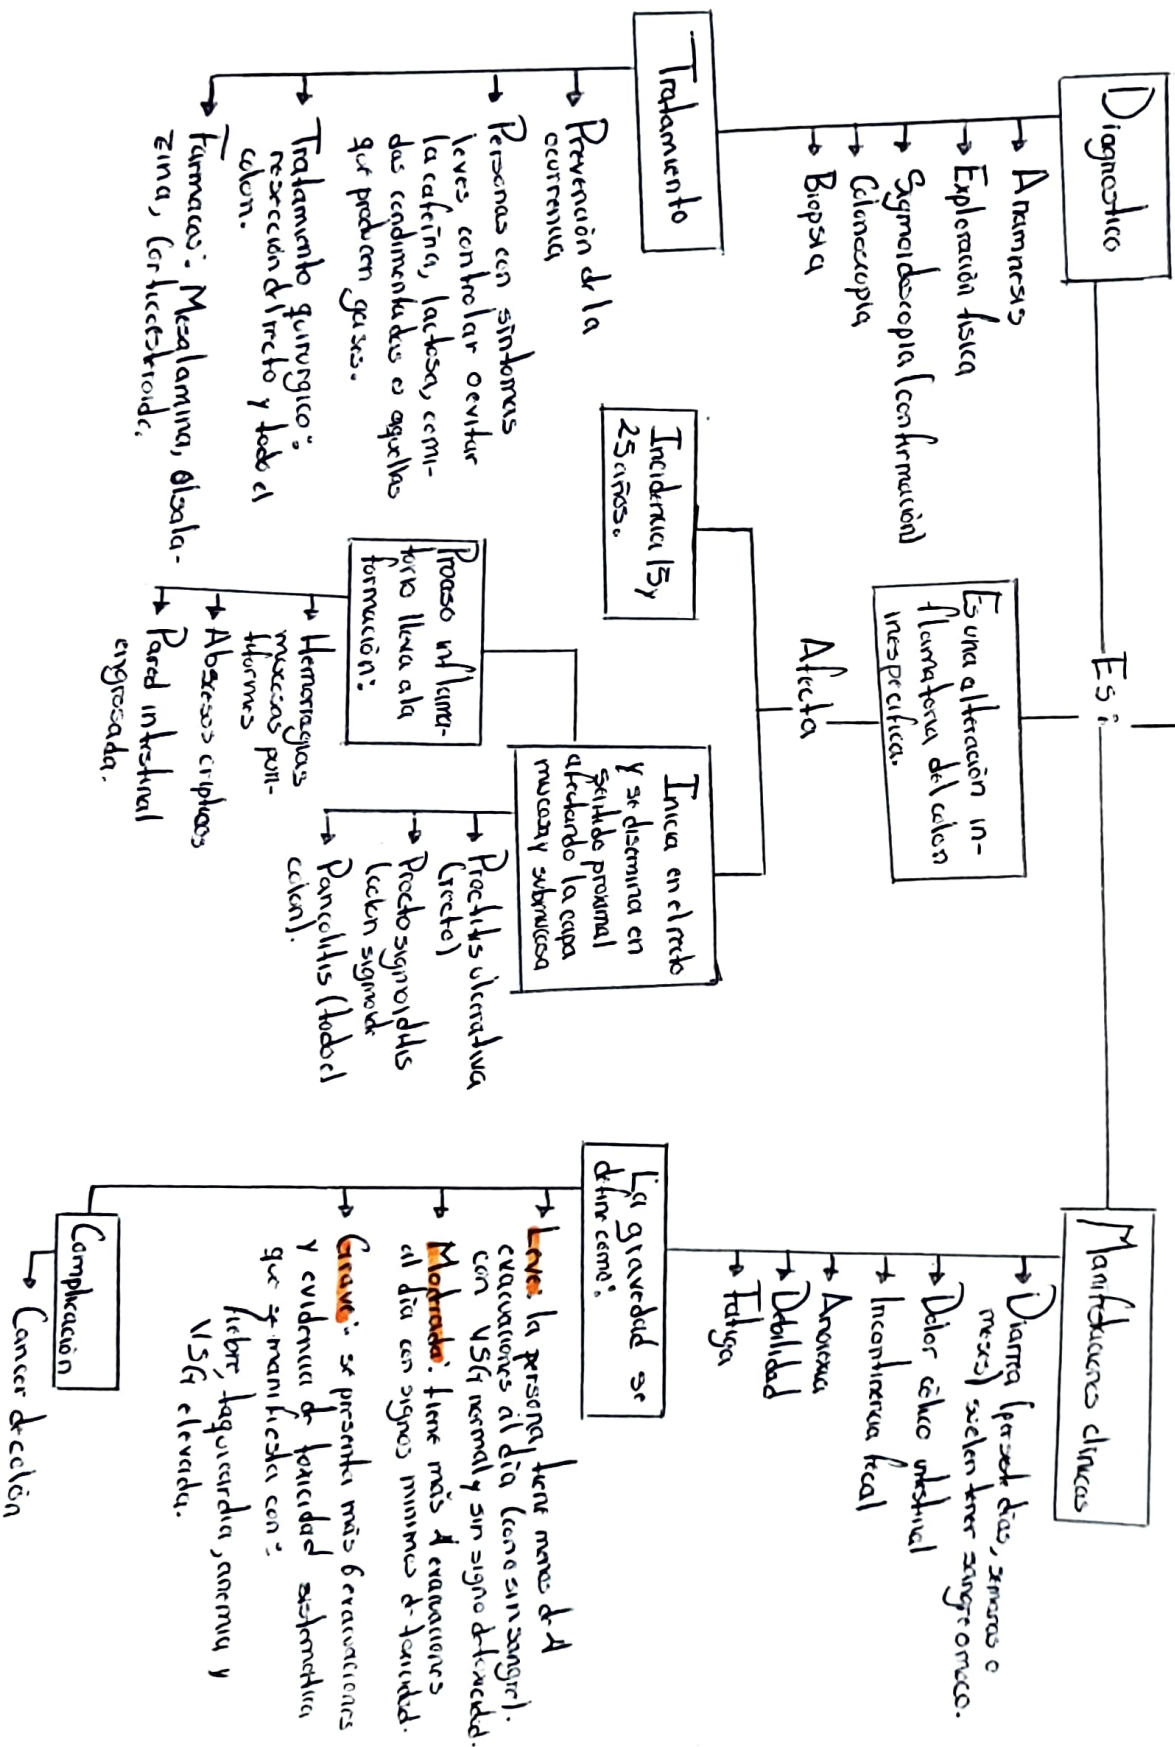 Es:
Diagnostico
Anamnesis
Exploración fisica
Sigmoidoscopia (confirmación)
Colonoscopia
Biopsia
Tratamiento
Prevención de la
ocurrencia
Personas con síntomas
leves controlar o evitar
la cafeína, lactosa, comi-
das condimentadas o aquellas
que producen gases.
Tratamiento quirurgico:
resección del recto y todo el
colon.
Farmacos: Mesalamina, Olsala-
zina, Corticoesteroide.
Es una alteración in-
flamatoria del colon
inespecifica.
Afecta
Incidencia 15 y
25 años.
Inicia en el recto
y se disemina en
sentido proximal
afectando la capa
mucosa y submucosa
Proctitis ulcerativa
(recto)
Proctosigmoiditis
(colon sigmoide
Pancolitis (todo el
colon).
Proceso inflama-
torio lleva a la
formación:
Hemorragias
mucosas pun-
tiformes
Abscesos cripticos
Pared intestinal
engrosada.
Manifestaciones clinicas
Diarrea (persiste días, semanas o
meses) suelen tener sangre o moco.
Dolor cólico intestinal
Incontinencia fecal
Anorexia
Debilidad
Fatiga
La gravedad se
define como:
Leve: la persona tiene menos de 4
evacuaciones al día (con o sin sangre).
con VSG normal y sin signo de toxicidad.
Moderada: tiene más 4 evacuaciones
al día con signos minimos de toxicidad.
Grave: se presenta más 6 evacuaciones
y evidencia de toxicidad sistematica
que se manifiesta con:
fiebre, taquicardia, anemia y
VSG elevada.
Complicación
Cancer de colón